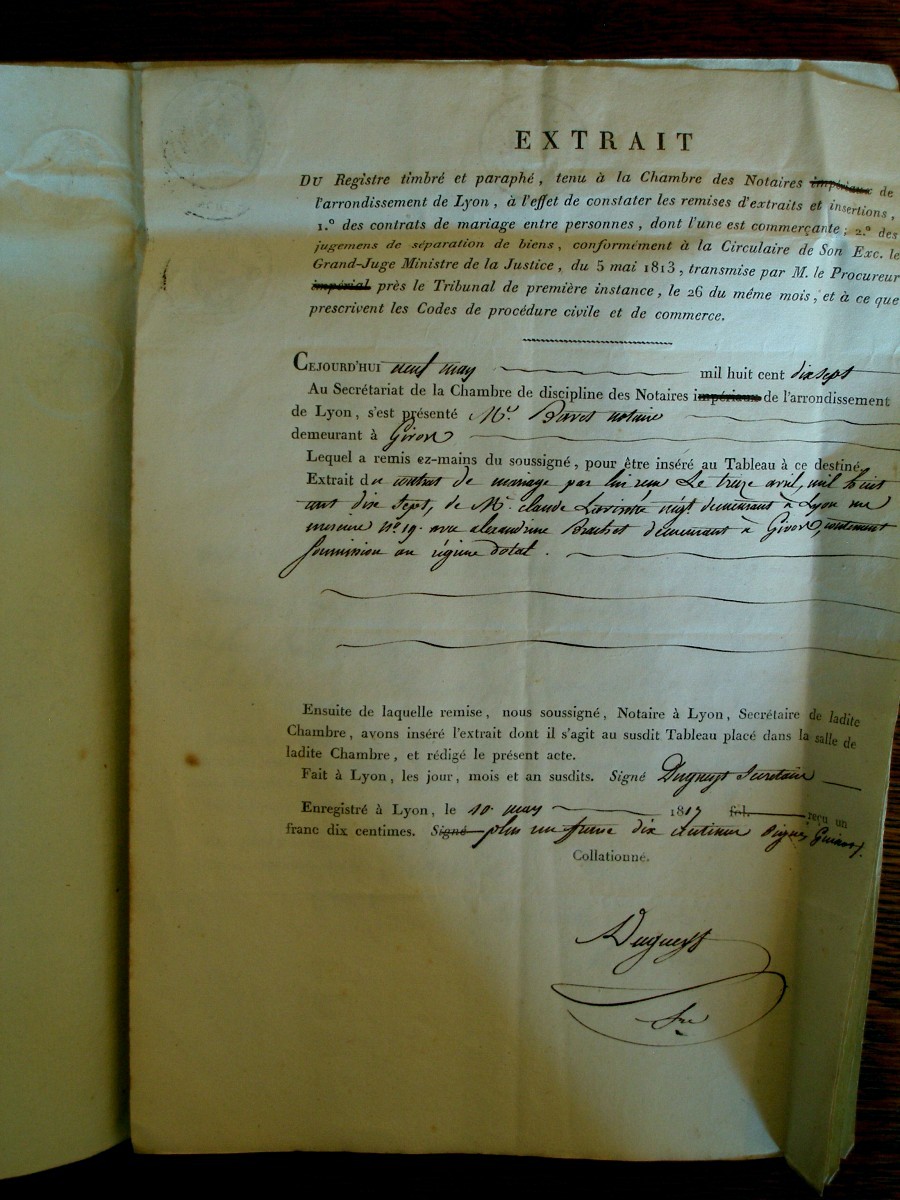 EXTRAIT
DU Registre timbré et paraphé, tenu à la Chambre des Notaires impériaux de
l'arrondissement de Lyon, à l'effet de constater les remises d'extraits et insertions,
1.º des contrats de mariage entre personnes, dont l'une est commerçante; 2.º des
jugemens de séparation de biens, conformément à la Circulaire de Son Exc. le
Grand-Juge Ministre de la Justice, du 5 mai 1813, transmise par M. le Procureur
impérial près le Tribunal de première instance, le 26 du même mois, et à ce que
prescrivent les Codes de procédure civile et de commerce.
CEJOURD'HUI neuf may mil huit cent dix sept
Au Secrétariat de la Chambre de discipline des Notaires impériaux de l'arrondissement
de Lyon, s'est présenté Mr. notaire
demeurant à Givors
Lequel a remis ez-mains du soussigné, pour être inséré au Tableau à ce destiné
Extrait du contrat de mariage par lui reçu Le treize avril, mil huit
cent dix sept, de Mr. claude négt demeurant à Lyon rue
mercière nº 19. avec alexandrine demeurant à Givors, contenant
soumission au régime dotal.
Ensuite de laquelle remise, nous soussigné, Notaire à Lyon, Secrétaire de ladite
Chambre, avons inséré l'extrait dont il s'agit au susdit Tableau placé dans la salle de
ladite Chambre, et rédigé le présent acte.
Fait à Lyon, les jour, mois et an susdits. Signé Dugueyt Secretaire
Enregistré à Lyon, le 10 may 1817 fol. reçu un
franc dix centimes. Signé plus un franc dix centimes signé
Collationné.
Dugueyt